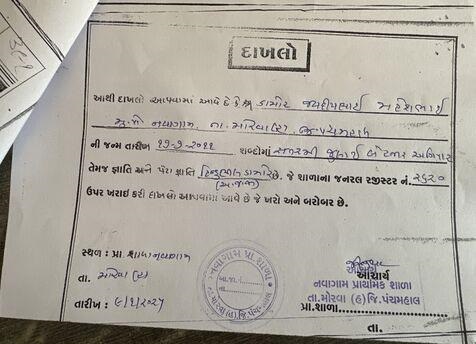 દાખલો
આથી દાખલો આપવામાં આવે છે કે શ્રી ડામોર જયદીપભાઈ મહેશભાઈ
મુ.પો નવાગામ, તા. મોરવા(હ) જિ-પંચમહાલ
ની જન્મ તારીખ ૧૭-૭-૨૦૧૧ શબ્દોમાં સત્તરમી જુલાઈ બે હજાર અગિયાર
તેમજ જ્ઞાતિ અને પેટા જ્ઞાતિ હિન્દુ ડામોર છે. જે શાળાના જનરલ રજીસ્ટર નં. ૨૬૨૦
(અ.જ.જા)
ઉપર ખરાઇ કરી દાખલો આપવામાં આવે છે જે ખરો અને બરોબર છે.
સ્થળ : પ્રા. શાળા નવાગામ
તા. મોરવા (હ)
તારીખ : ૯/૧/૨૦૨૫
નવાગામ પ્રા. શાળા
તા. મોરવા (હ) જિ. પંચમહાલ
આચાર્ય
નવાગામ પ્રાથમિક શાળા
તા.મોરવા (હ)જિ.પંચમહાલ
પ્રા.શાળા
તા.